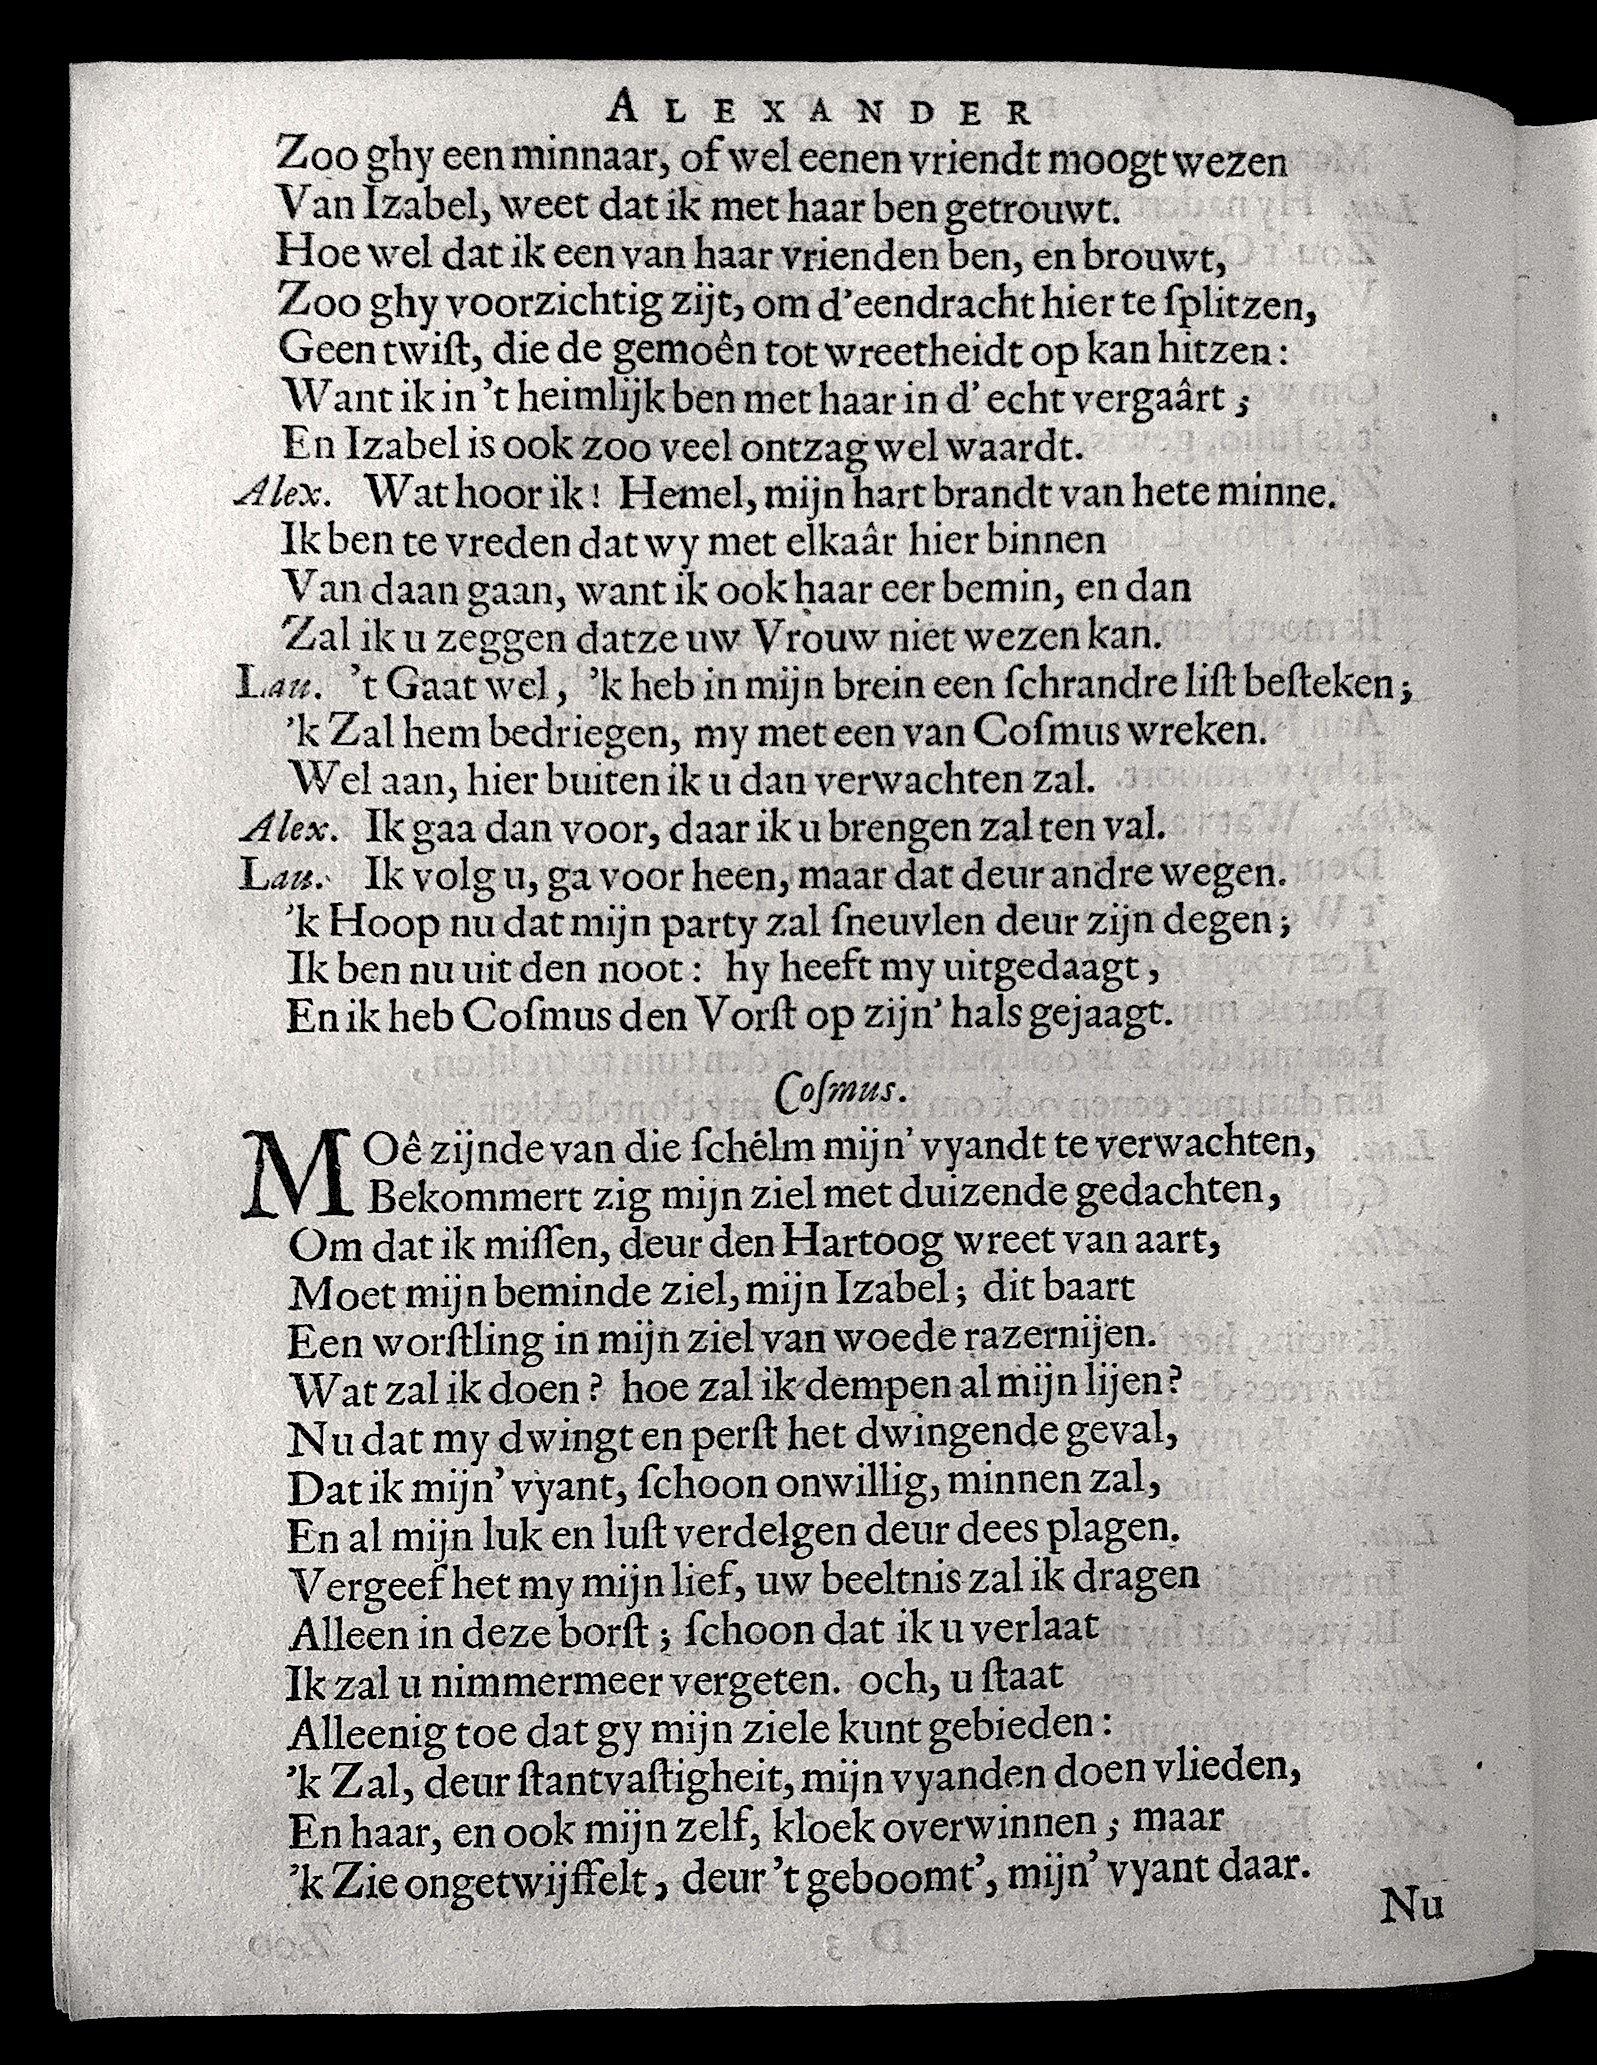 ALEXANDER
Zoo ghy een minnaar, of wel eenen vriendt moogt wezen
Van Izabel, weet dat ik met haar ben getrouwt.
Hoe wel dat ik een van haar vrienden ben, en brouwt,
Zoo ghy voorzichtig zijt, om d'eendracht hier te ſplitzen,
Geen twiſt, die de gemoên tot wreetheidt op kan hitzen:
Want ik in 't heimlijk ben met haar in d' echt vergaârt;
En Izabel is ook zoo veel ontzag wel waardt.
Alex. Wat hoor ik! Hemel, mijn hart brandt van hete minne.
Ik ben te vreden dat wy met elkaâr hier binnen
Van daan gaan, want ik ook haar eer bemin, en dan
Zal ik u zeggen datze uw Vrouw niet wezen kan.
Lau. 't Gaat wel, 'k heb in mijn brein een ſchrandre liſt beſteken;
'k Zal hem bedriegen, my met een van Coſmus wreken.
Wel aan, hier buiten ik u dan verwachten zal.
Alex. Ik gaa dan voor, daar ik u brengen zal ten val.
Lau. Ik volg u, ga voor heen, maar dat deur andre wegen.
'k Hoop nu dat mijn party zal ſneuvlen deur zijn degen;
Ik ben nu uit den noot: hy heeft my uitgedaagt,
En ik heb Coſmus den Vorſt op zijn' hals gejaagt.
Coſmus.
MOê zijnde van die ſchélm mijn' vyandt te verwachten,
Bekommert zig mijn ziel met duizende gedachten,
Om dat ik miſſen, deur den Hartoog wreet van aart,
Moet mijn beminde ziel, mijn Izabel; dit baart
Een worſtling in mijn ziel van woede razernijen.
Wat zal ik doen? hoe zal ik dempen al mijn lijen?
Nu dat my dwingt en perſt het dwingende geval,
Dat ik mijn' vyant, ſchoon onwillig, minnen zal,
En al mijn luk en luſt verdelgen deur dees plagen.
Vergeef het my mijn lief, uw beeltnis zal ik dragen
Alleen in deze borſt; ſchoon dat ik u verlaat
Ik zal u nimmermeer vergeten. och, u ſtaat
Alleenig toe dat gy mijn ziele kunt gebieden:
'k Zal, deur ſtantvaſtigheit, mijn vyanden doen vlieden,
En haar, en ook mijn zelf, kloek overwinnen; maar
'k Zie ongetwijffelt, deur 't geboomt', mijn' vyant daar.
Nu